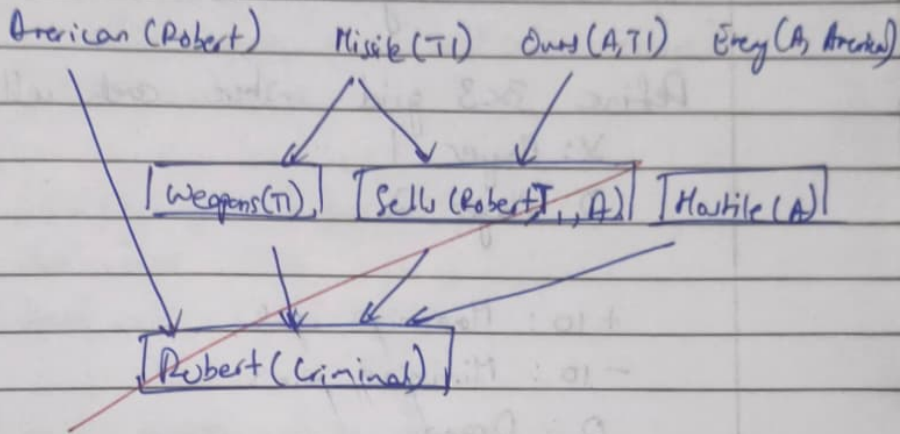 American (Robert) Missile (T1) Owns (A, T1) Enemy (A, America)
Weapons(T1) Sells (Robert, T1, A) Hostile (A)
Robert (Criminal)